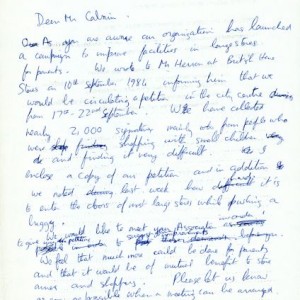 Dear Mr Calvin.
As you are aware our organisation has launched
a campaign to improve facilities in large stores
for parents. We wrote to Mr Herron at
Stores on 10th September 1986 informing him that we
would be circulating a petition in the city centre
from 17th - 22nd September. We have collected
nearly 2,000 signatures mainly from people who
were shopping with small children
do and finding it very difficult. I
enclose a copy of our petition and in addition
we noted last week how difficult it is
to enter the doors of most large stores while pushing a
buggy.
We would like to meet you
to give
We feel that much more could be done for parents
and that it would be of mutual benefit to store
and shoppers. Please let us know
as soon as possible when a meeting can be arranged.